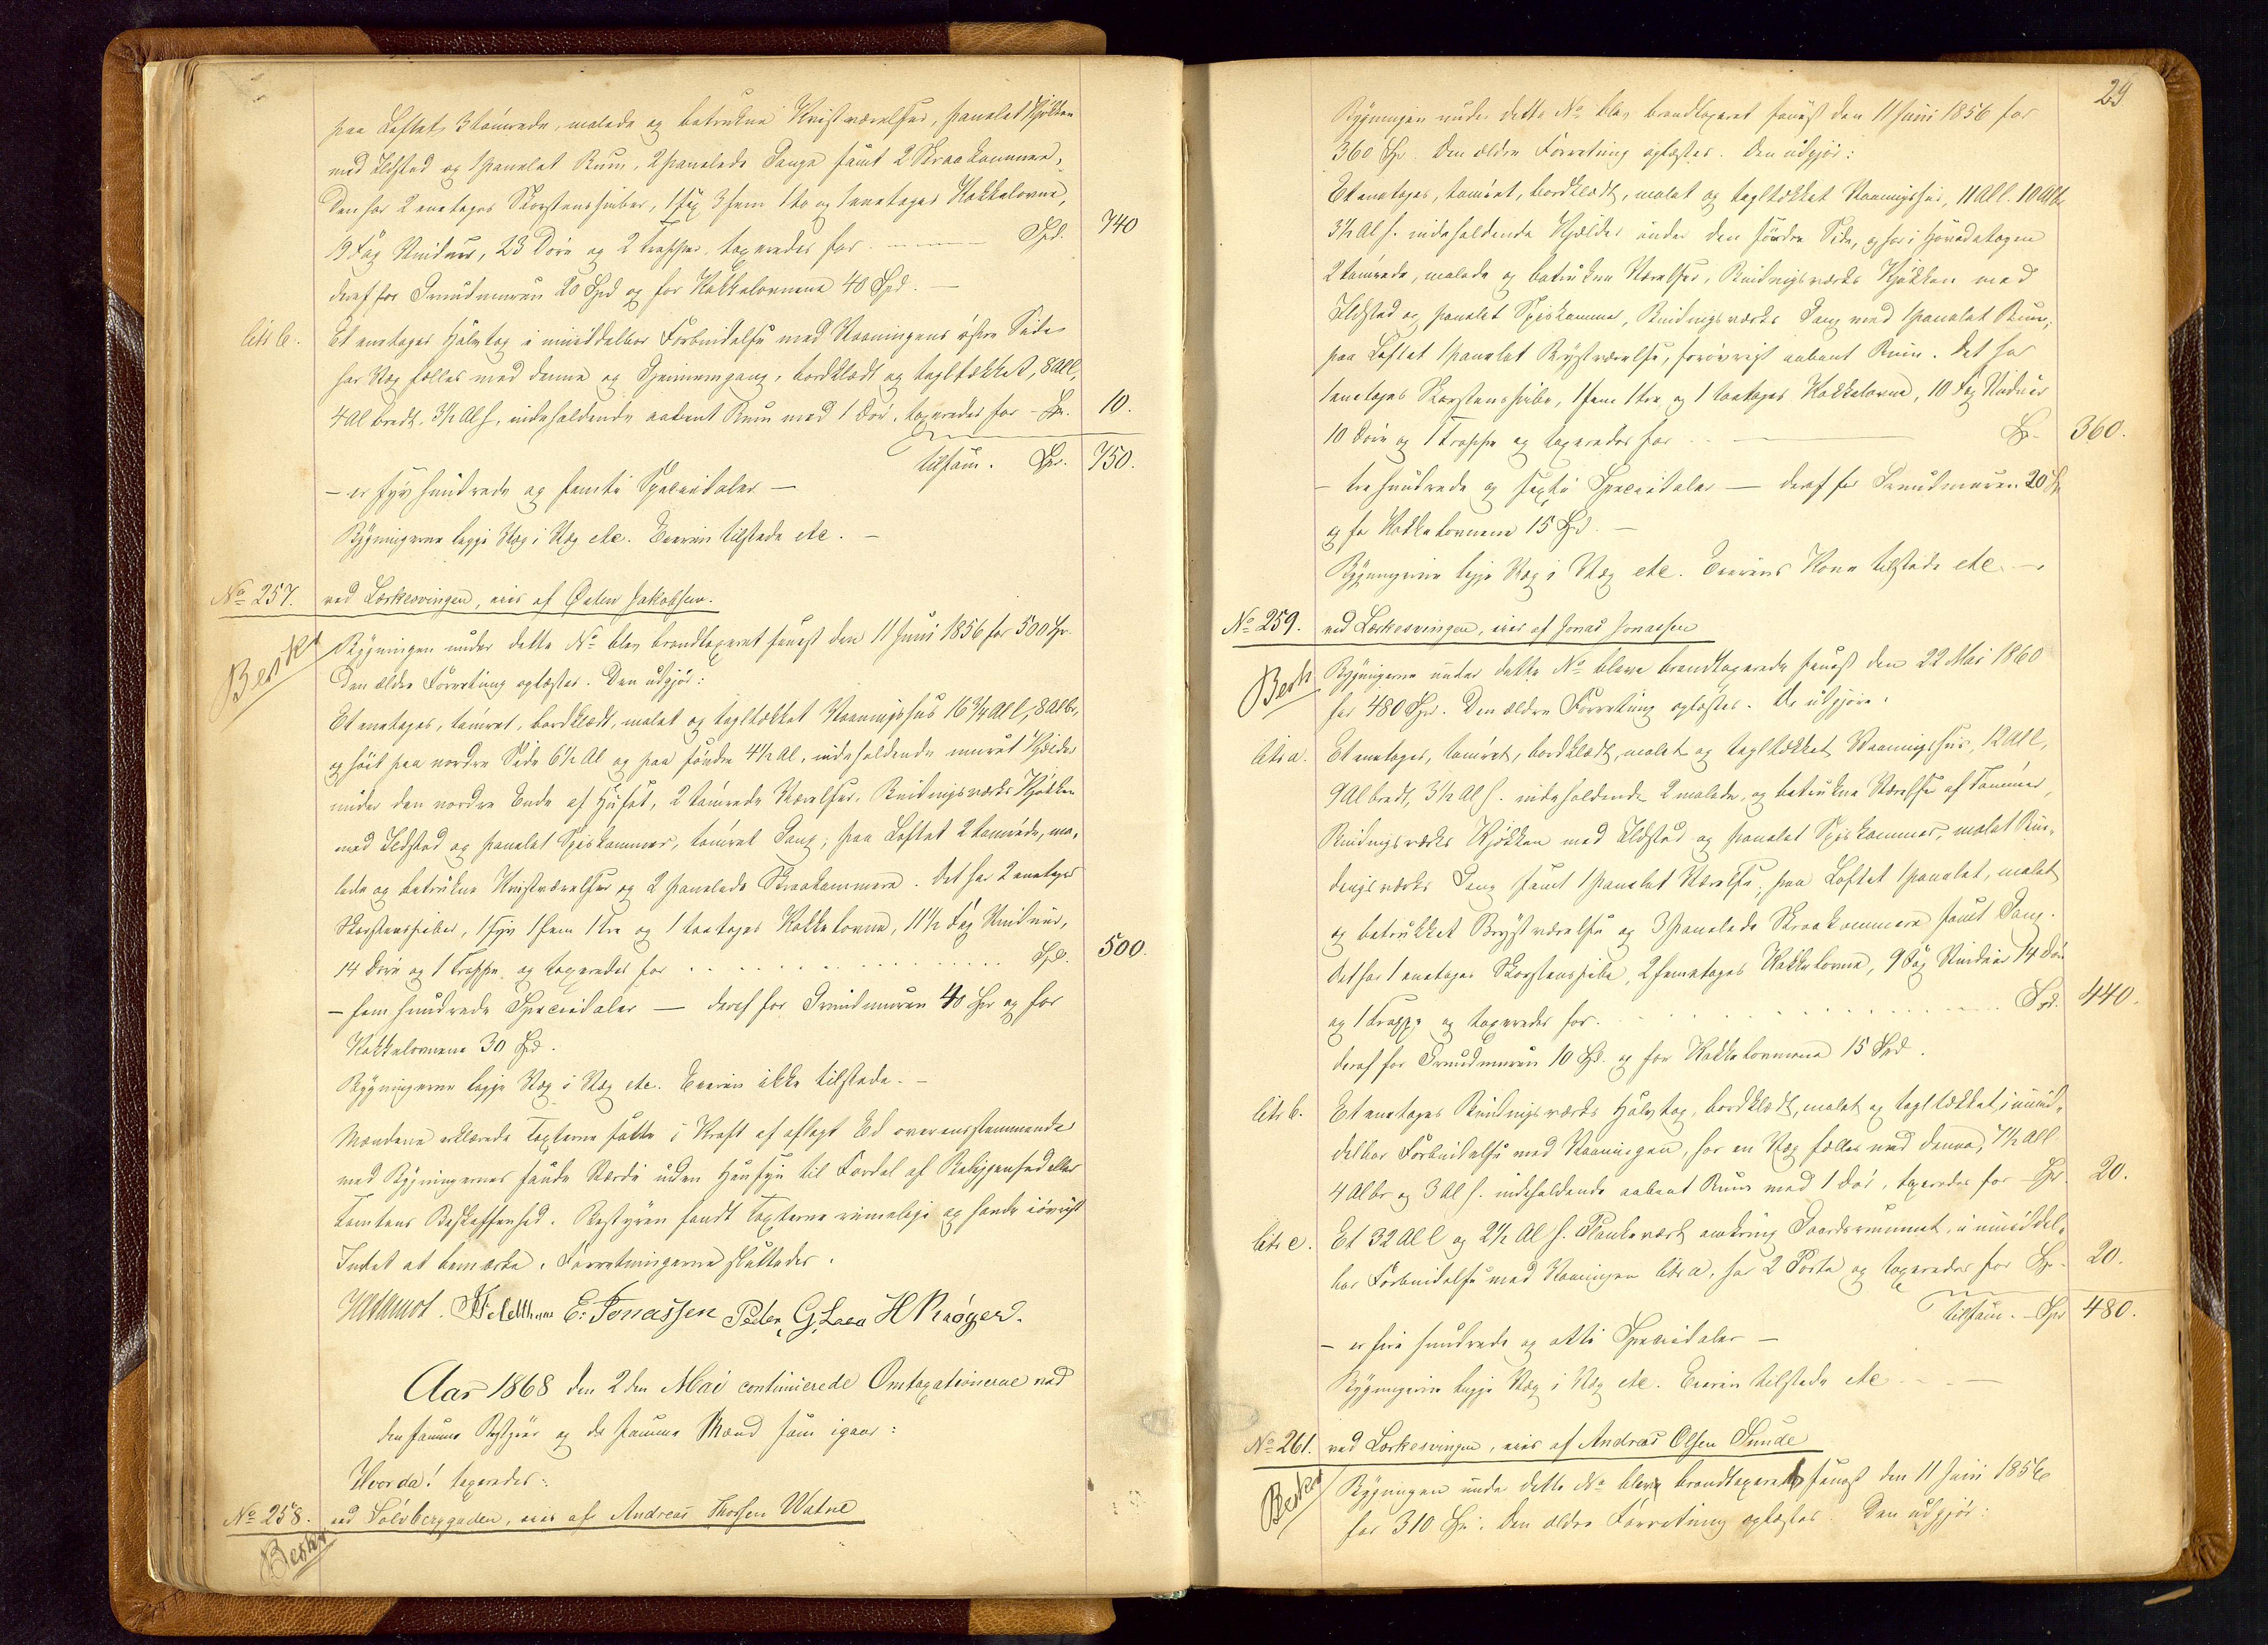 paa Loftet 3 tømrede, malede og betrukne Kvistværelser, panelet Kjøkken
med Ildsted og 1 panelet Rum, 2 panelede Gange samt 2 Skraakammere.
Den har 2 enetages Skorstenspiber, 1 sex 3 fem 1 to og 1 enetages Kakkelovne,
19 Fag Vinduer, 23 Døre og 2 Trapper, taxeredes for Spd. 740
deraf for Grundmuren 20 Spd og for Kakkelovnene 40 Spd. —
Litr b. Et enetages Halvtag i umiddelbar Forbindelse med Vaaningens østre Side
har Væg fælles med denne og Gjennemgang, bordklædt og tagltækket, 8 Al l,
4 Al bredt, 3½ Al h, indeholdende aabent Rum med 1 Dør, taxeredes for - Sp. 10.
tilsam. Spd. 750.
– er syv hundrede og femti Speciedaler –
Bygningerne ligge Væg i Væg etc. Eieren tilstede etc. –
No 257. ved Lærkesvingen, eies af Østen Jakobsen.
Beskr
Bygningen under dette No blev brandtaxeret senest den 11 Juni 1856 for 500 Sp.
Den ældre Forretning oplæstes. Den udgjør:
Et enetages, tømret, bordklædt, malet og tagltækket Vaaningshus 16¾ Al l, 8 Al br,
og høit paa nordre Side 6½ Al og paa søndre 4½ Al, indeholdende muret Kjælder
under den nordre Ende af Huset, 2 tømrede Værelser, Bindingsværks Kjøkken
med Ildsted og panelet Spiskammer, tømret Gang; paa Loftet 2 tømrede, ma-
lede og betrukne Kvistværelser og 2 panelede Skraakammere. Det har 2 enetages
Skorstenspiber, 1 syv 1 fem 1 tre og 1 toetages Kakkelovne, 11½ Fag Vinduer,
14 Døre og 1 Trappe og taxeredes for Spd. 500.
– fem hundrede Speciedaler – deraf for Grundmuren 40 Spd og for
Kakkelovnene 30 Spd.
Bygningerne ligge Væg i Væg etc. Eieren ikke tilstede. –
Mændene erklærede Taxterne satte i Kraft af aflagt Ed overensstemmende
med Bygningernes sande Værdi uden Hensyn til Fordel af Beliggenhed eller
Tomtens Beskaffenhed. Bestyren fandt Taxterne rimelige og havde iøvrigt
Intet at bemærke. Forretningerne sluttedes.
E. Jonassen Peder G. Laea H Krøger.
Aar 1868 den 2den Mai continuerede Omtaxationerne ved
den samme Bestyrer og de samme Mænd som igaar:
Hvorda! taxeredes:
No 258. ved Sølvberggaden, eies af Andreas Thorsen Watne
Beskr
29
Bygningen under dette No blev brandtaxeret senest den 11 Juni 1856 for
360 Spd. Den ældre Forretning oplæstes. Den udgjør:
Et enetages, tømret, bordklædt, malet og tagltækket Vaaningshus, 11 Al l. 10 Al br.
3½ Al h. indeholdende Kjælder under den søndre Side, og har i Hovedetagen
2 tømrede, malede og betrukne Værelser, Bindingsværks Kjøkken med
Ildsted og panelet Spiskammer, Bindingsværks Gang med 1 panelet Rum,
paa Loftet 1 panelet Brystværelse, forøvrigt aabent Rum. Det har
1 enetages Skorstenspibe, 1 fem 1 tre og 1 toetages Kakkelovne, 10 Fag Vinduer
10 Døre og 1 Trappe og taxeredes for Sp. 360.
– tre hundrede og sexti Speciedaler – deraf for Grundmuren 20 Sp
og for Kakkelovnene 15 Spd. –
Bygningerne ligge Væg i Væg etc. Eierens Kone tilstede etc –
No 259. ved Lærkesvingen, eies af Jonas Jonassen
Besk
Bygningerne under dette No bleve brandtaxerede senest den 22 Mai 1860
for 480 Spd. Den ældre Forretning oplæstes. De udgjøre:
Litr a. Et enetages, tømret, bordklædt, malet og tagltækket Vaaningshus, 12 Al l,
9 Al bredt, 3½ Al h. indeholdende 2 malede og betrukne Værelser af Tømmer,
Bindingsværks Kjøkken med Ildsted og panelet Spiskammer, malet Bin-
dingsværks Gang samt 1 panelet Værelse; paa Loftet 1 panelet, malet
og betrukket Brystværelse og 3 panelede Skraakammere samt Gang.
Det har 1 enetages Skorstenspibe, 2 femetages Kakkelovne, 9 Fag Vinduer 14 Døre
og 1 Trappe og taxeredes for Spd. 440.
deraf for Grundmuren 10 Spd. og for Kakkelovnene 15 Spd.
Litr b. Et enetages Bindingsværks Halvtag, bordklædt, malet og tagltækket, i umid-
delbar Forbindelse med Vaaningen, har en Væg fælles med denne, 7½ Al l
4 Al br og 3 Al h. indeholdende aabent Rum med 1 Dør, taxeredes for Sp. 20.
Litr c. Et 32 Al l og 2½ Al h. Plankeværk omkring Gaardsrummet, i umiddel-
bar Forbindelse med Vaaningen litr a, har 2 Porte og taxeredes for Sp. 20.
tilsam. Spd 480.
– er fire hundrede og otti Speciedaler –
Bygningerne ligge Væg i Væg etc. Eieren tilstede etc –
No 261. ved Lærkesvingen, eies af Andreas Olsen Sunde
Beskr
Bygningen under dette No blev brandtaxeret senest den 11 Juni 1856
for 310 Sp. Den ældre Forretning oplæstes. Den udgjør: